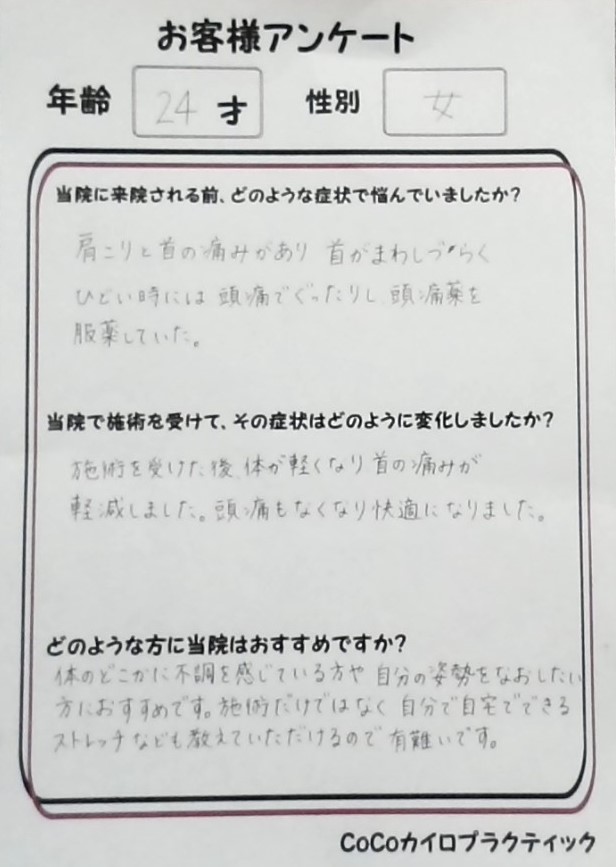 お客様アンケート
年齢 24 才 性別 女
当院に来院される前、どのような症状で悩んでいましたか?
肩こりと首の痛みがあり 首がまわしづらく
ひどい時には 頭痛でぐったりし、頭痛薬を
服薬していた。
当院で施術を受けて、その症状はどのように変化しましたか?
施術を受けた後、体が軽くなり首の痛みが
軽減しました。頭痛もなくなり快適になりました。
どのような方に当院はおすすめですか?
体のどこかに不調を感じている方や 自分の姿勢をなおしたい
方におすすめです。施術だけではなく 自分で自宅でできる
ストレッチなども教えていただけるので 有難いです。
CoCoカイロプラクティック